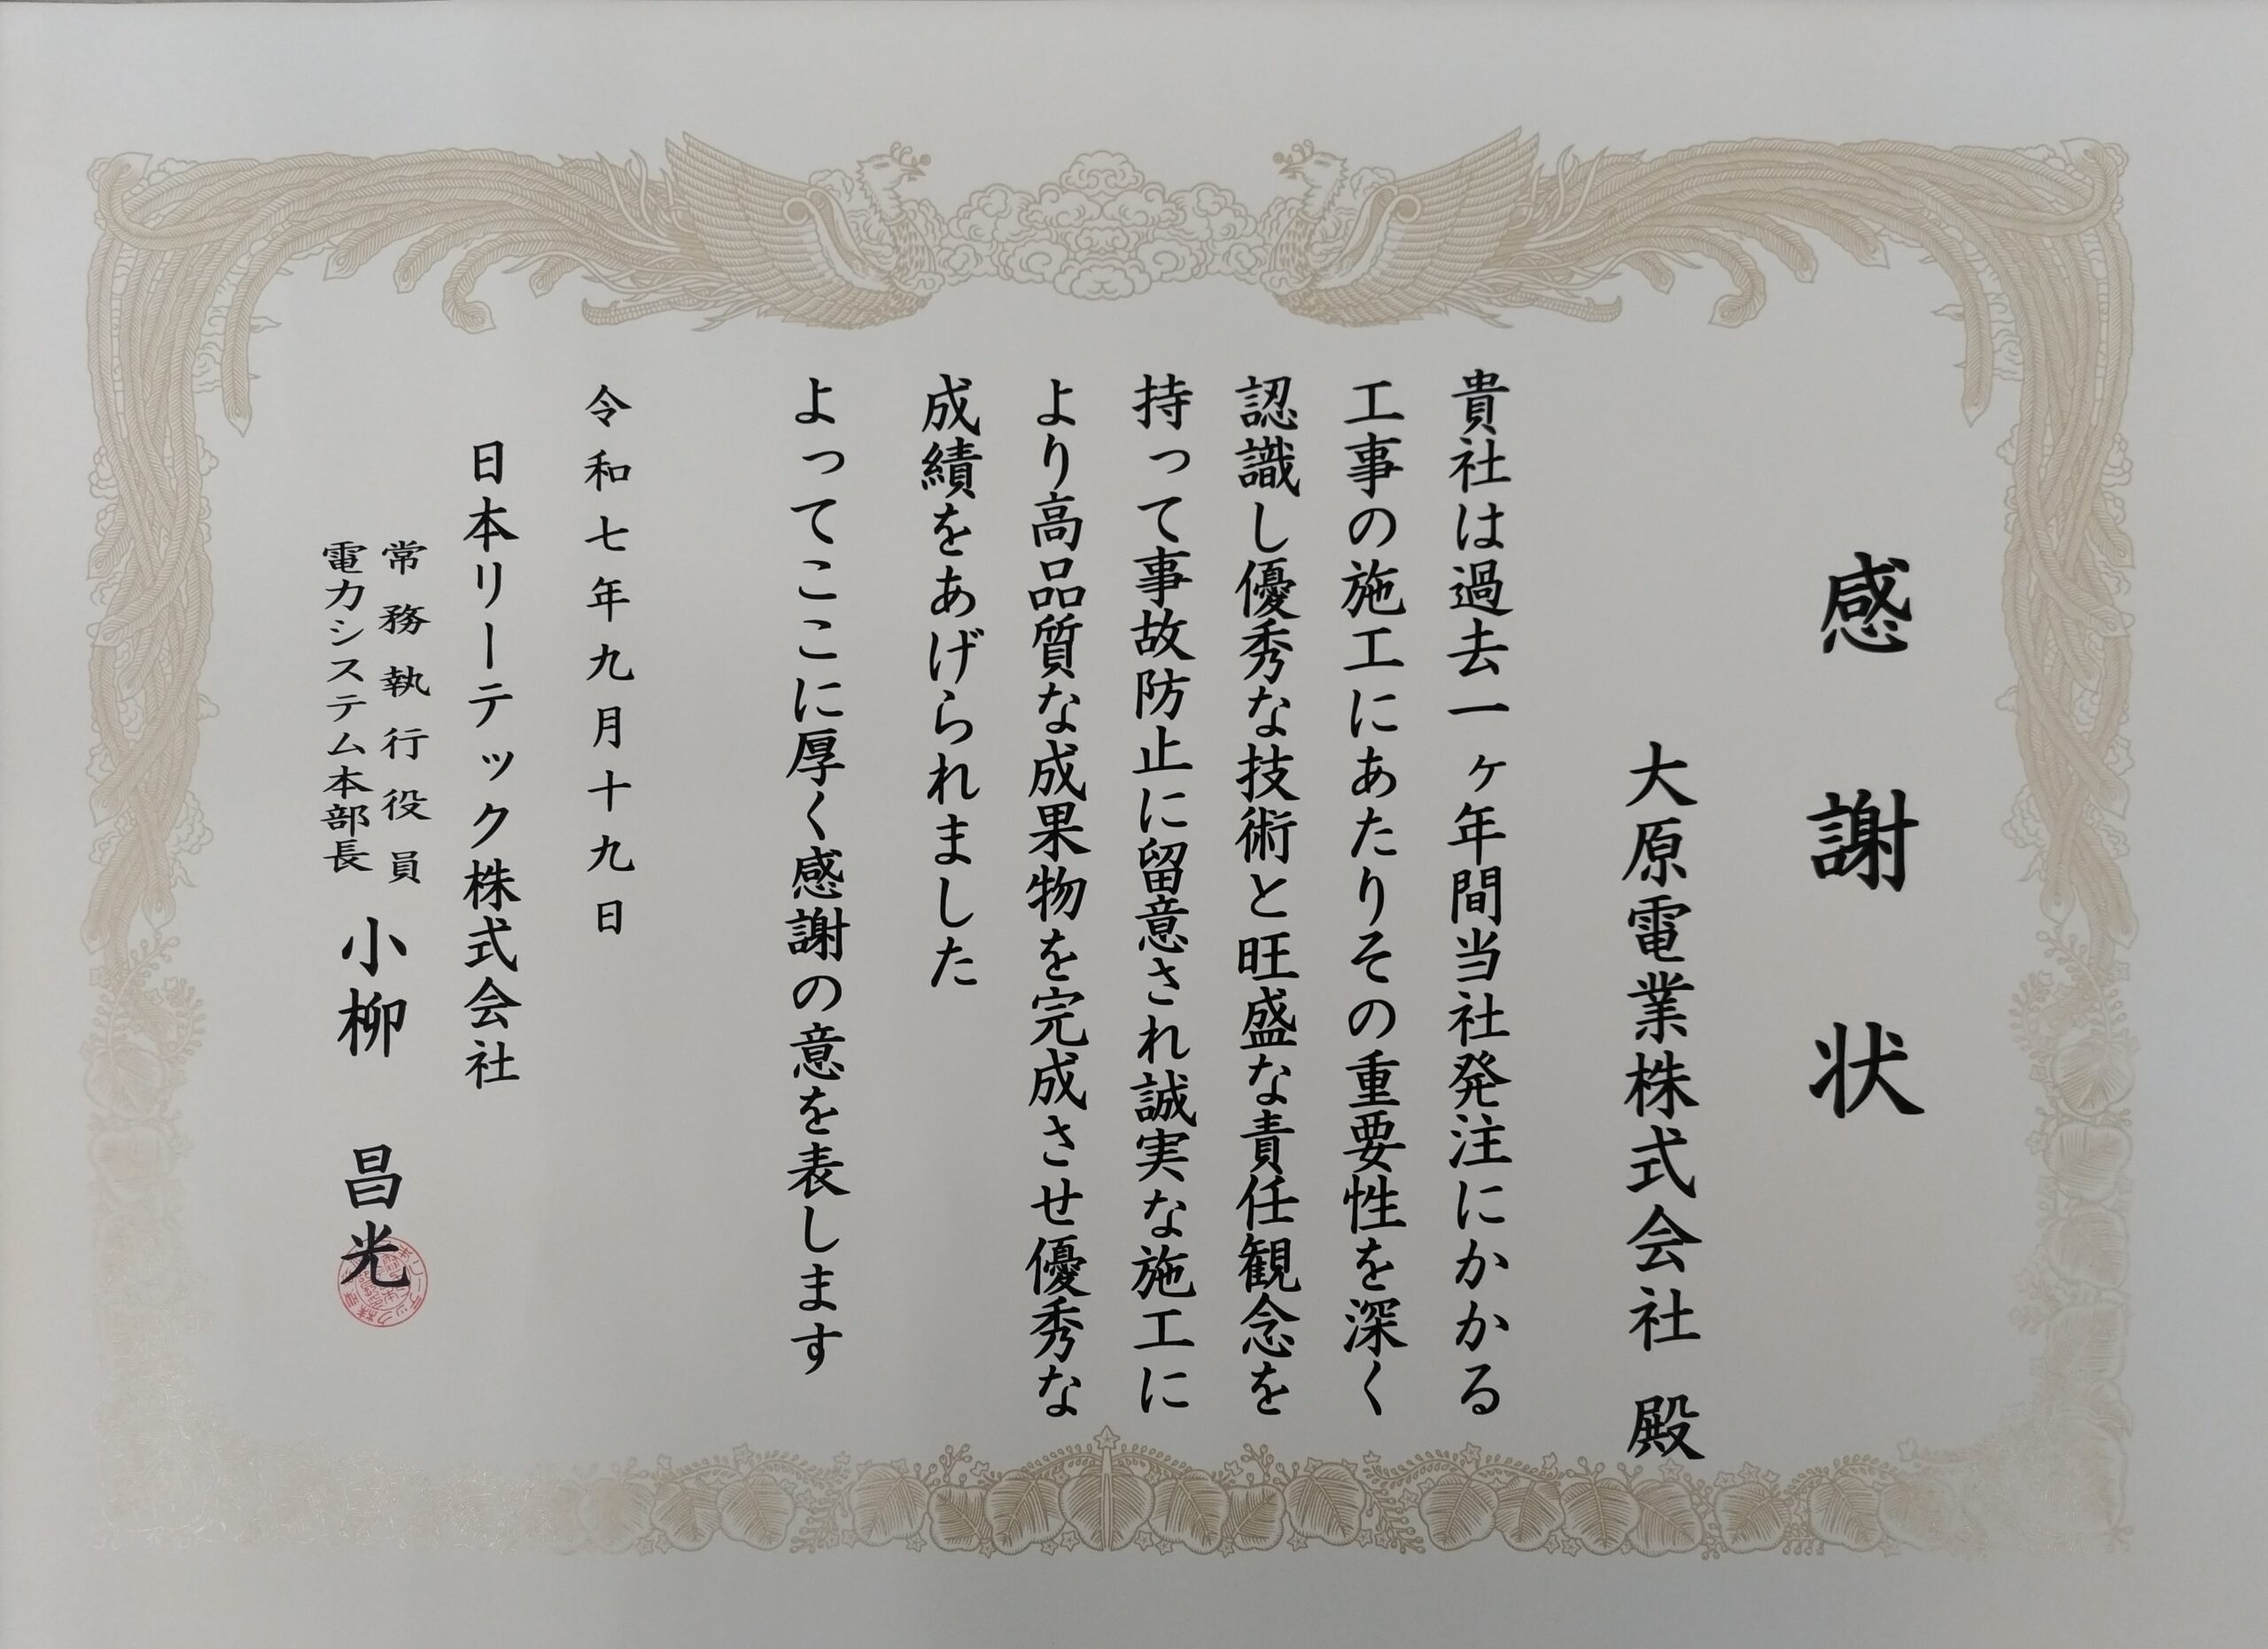 感謝状
大原電業株式会社 殿
貴社は過去一ヶ年間当社発注にかかる
工事の施工にあたりその重要性を深く
認識し優秀な技術と旺盛な責任観念を
持って事故防止に留意され誠実な施工に
より高品質な成果物を完成させ優秀な
成績をあげられました
よってここに厚く感謝の意を表します
令和七年九月十九日
日本リーテック株式会社
常務執行役員
電力システム本部長
小柳 昌光